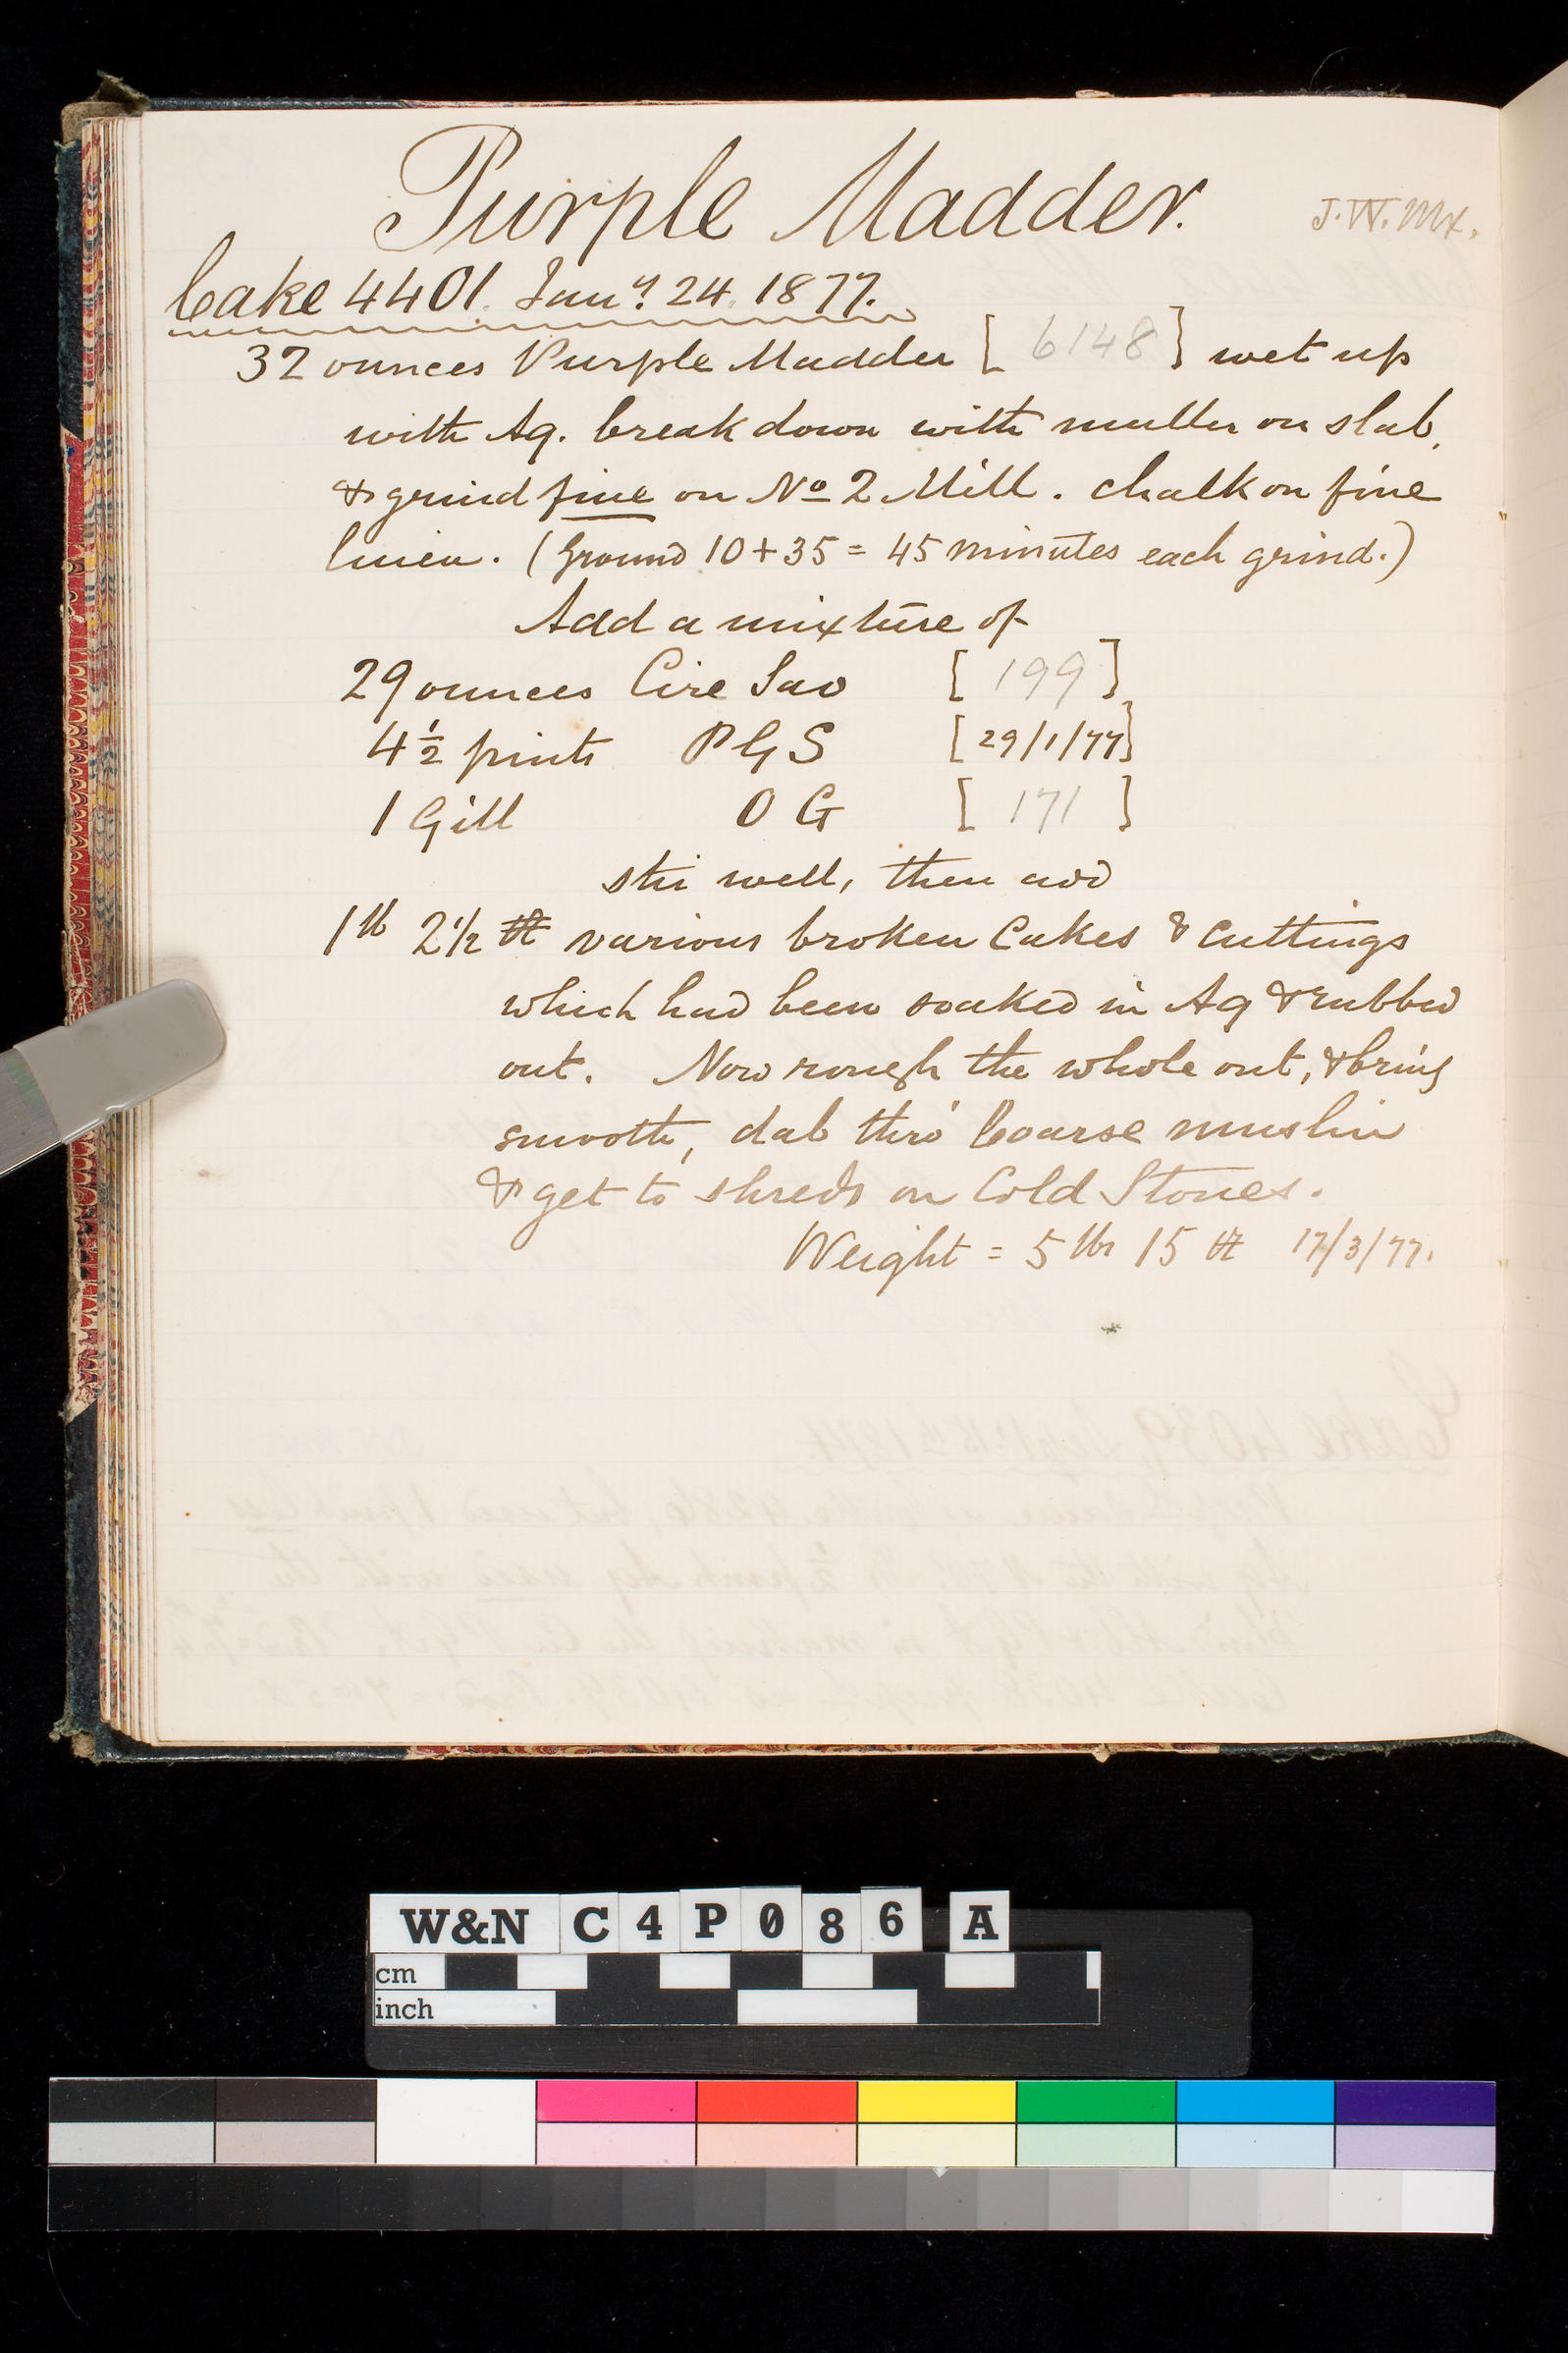 Purple Madder.
J.W. Mx.
Cake 4401. Jany. 24. 1877.
32 ounces Purple Madder [ 6148 ] wet up
with Aq. break down with muller on slab,
& grind fine on No 2 Mill. chalk on fine
linen. (Ground 10 + 35 = 45 minutes each grind.)
Add a mixture of
29 ounces Cire Sav [ 199 ]
4½ pints P G S [29/1/77]
1 Gill O G [ 171 ]
stir well, then add
1 lb 2½ various broken Cakes & Cuttings
which had been soaked in Aq & rubbed
out. Now rough the whole out, & bring
smooth, dab thro' Coarse muslin
& get to shreds on Cold Stones.
Weight = 5 lbs 15 17/3/77.
W&N C4P086 A
cm
inch